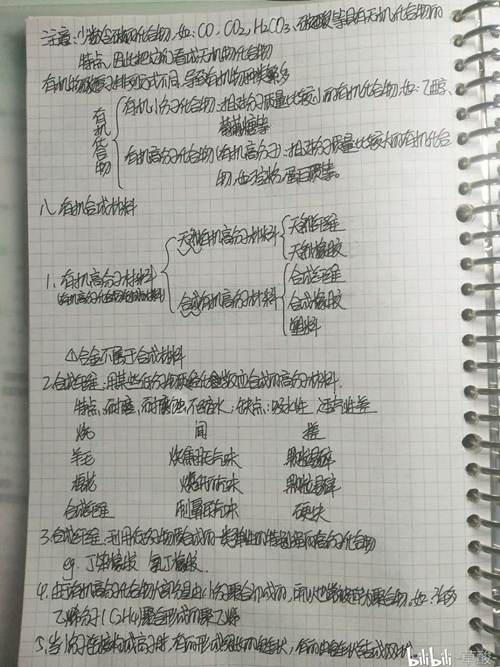 注意:少数含碳的化合物,如:CO、CO2、H2CO3、碳酸盐等具有无机化合物的
特点,因此把它们看成无机化合物
有机物碳原子排列方式不同,导致有机物种类繁多
有机化合物
有机小分子化合物:相对分子质量比较小的有机化合物,如:乙醇、
葡萄糖等
有机高分子化合物(有机高分子):相对分子质量比较大的有机化合
物,如:淀粉、蛋白质等。
八.有机合成材料
1.有机高分子材料
天然有机高分子材料
天然纤维
天然橡胶
合成有机高分子材料
合成纤维
合成橡胶
塑料
合金不属于合成材料
2.合成纤维:用某些低分子物质经化学反应合成的高分子材料.
特点:耐磨,耐腐蚀,不缩水;缺点:吸水性 透气性差
烧 闻 搓
羊毛 烧焦羽毛气味
棉花 烧纸的气味
合成纤维 刺鼻气味 硬块
3.合成纤维:利用低分子物质合成的一类弹性的特别是高分子化合物
eg. 丁苯橡胶 氯丁橡胶.
4.由于有机高分子化合物大部分是由小分子聚合而成的,所以也常被称为聚合物,如:许多
乙烯分子(C2H4)聚合形成的聚乙烯
5.当小分子连接构成高分子时,有的形成很长的链状,有的由链状结成网状.
bilibili